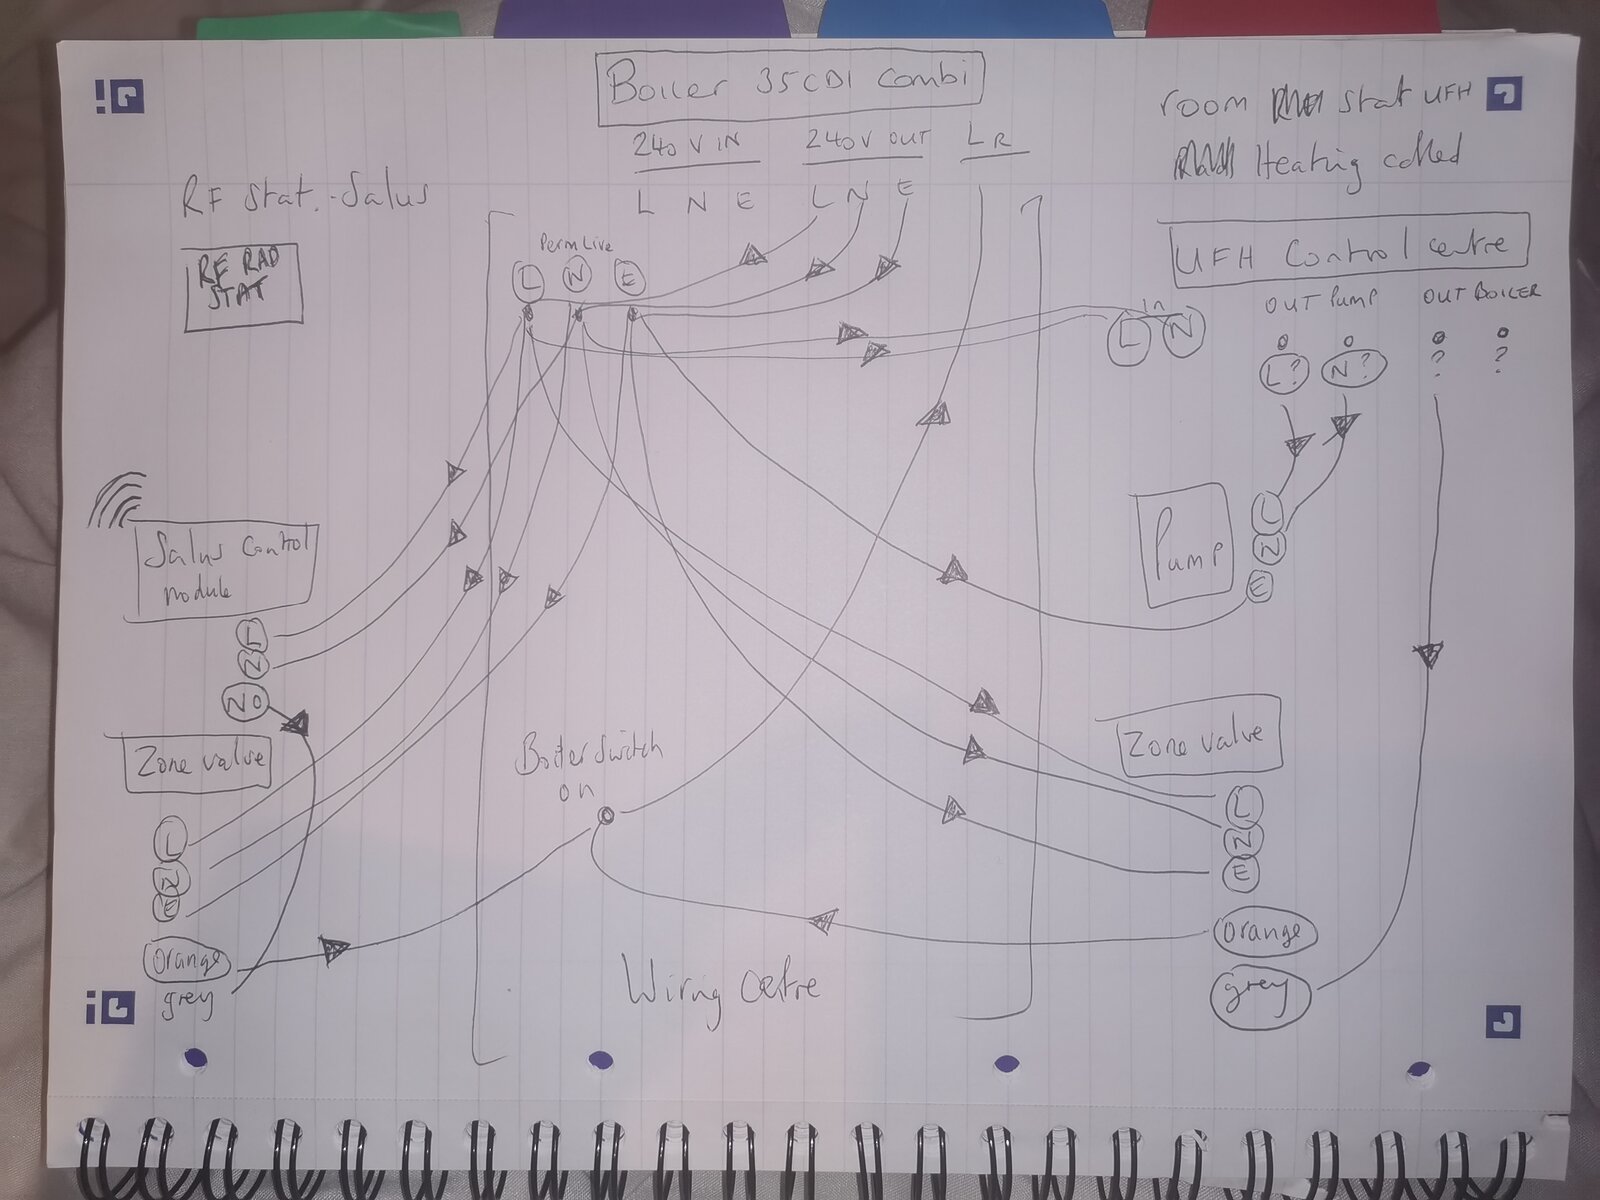 Boiler 35CDI Combi
240V IN
240V OUT
LR
L N E
L N E
room stat UFH
Heating called
RF Stat.-Salus
RF RAD
STAT
Perm Live
L N E
UFH Control centre
OUT PUMP
OUT BOILER
in
L N
L? N? ? ?
Salus Control
module
L
N
NO
Pump
L
N
E
Zone valve
L
N
E
Orange
grey
Boiler switch
on
Zone valve
L
N
E
Orange
grey
Wiring Cetre